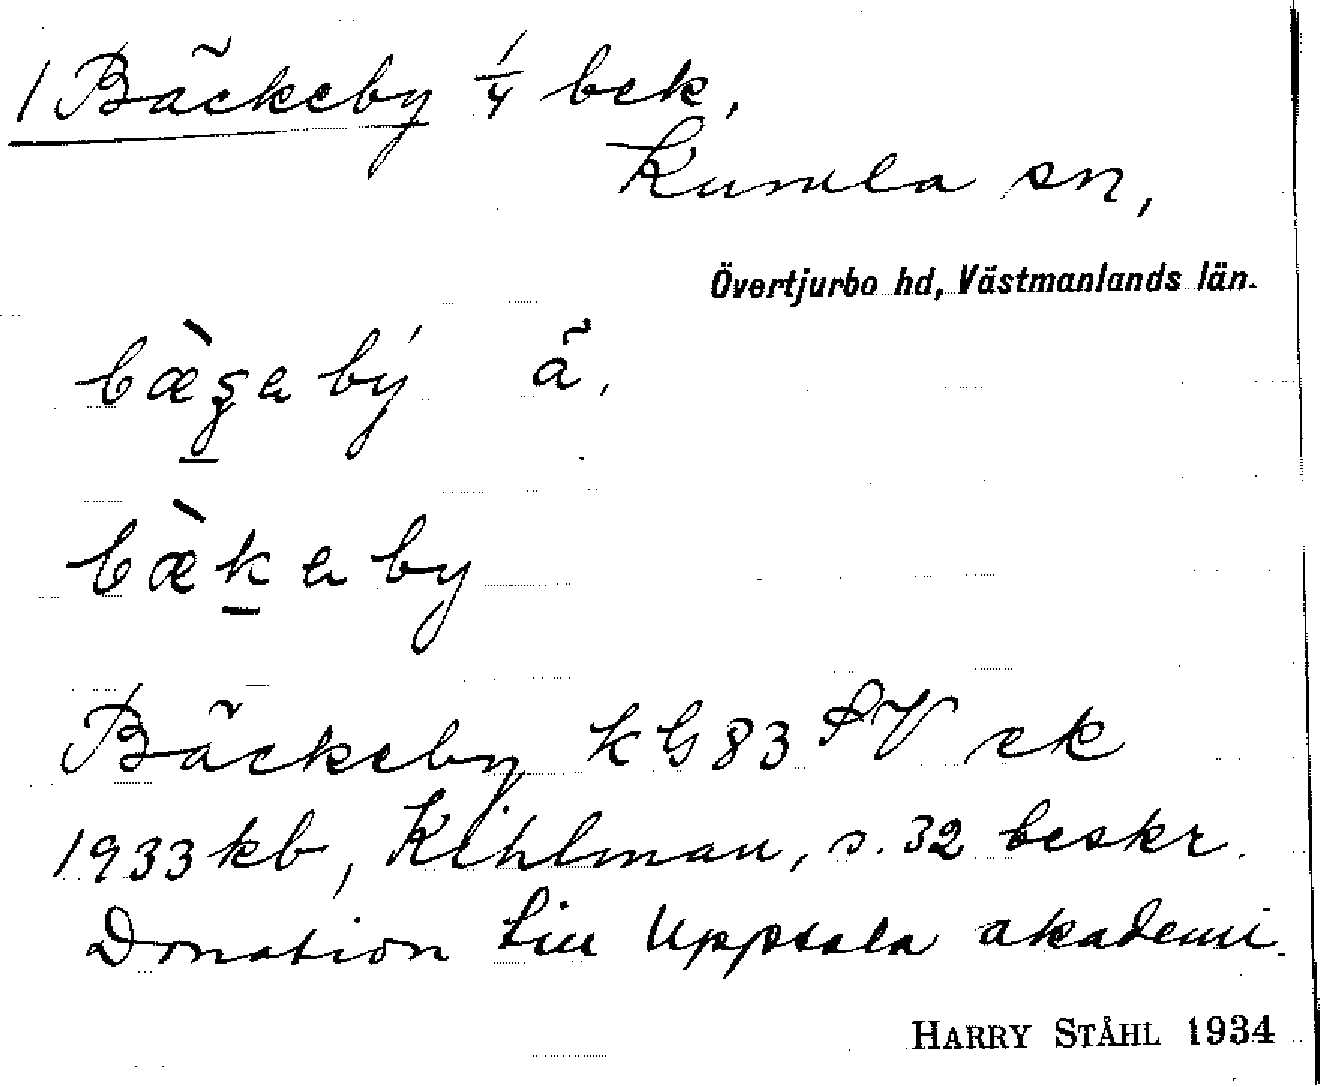 1 Bäckeby 1/4 bek,
Kumla sn,
Övertjurbo hd, Västmanlands län.
bæ̀gabý ä̃,
bæ̀kaby
Bäckeby kG83 SV ek
1933 kb, Kihlman, s. 32 beskr.
Donation till Uppsala akademi.
HARRY STÅHL 1934